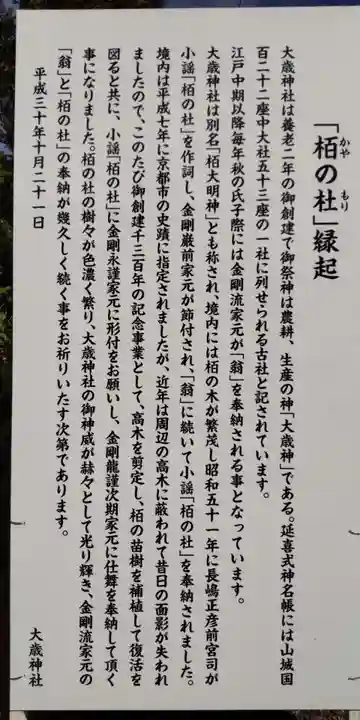 「栢の杜」縁起
かや
もり
大歳神社は養老二年の御創建で御祭神は農耕、生産の神「大歳神」である。延喜式神名帳には山城国
百二十二座中大社五十三座の一社に列せられる古社と記されています。
江戸中期以降毎年秋の氏子際には金剛流家元が「翁」を奉納される事となっています。
大歳神社は別名「栢大明神」とも称され、境内には栢の木が繁茂し昭和五十一年に長嶋正彦前宮司が
小謡「栢の杜」を作詞し、金剛巌前家元が節付され、「翁」に続いて小謡「栢の杜」を奉納されました。
境内は平成七年に京都市の史蹟に指定されましたが、近年は周辺の高木に蔽われて昔日の面影が失われ
ましたので、このたび御創建千三百年の記念事業として、高木を剪定し、栢の苗樹を補植して復活を
図ると共に、小謡「栢の杜」に金剛永謹家元に形付をお願いし、金剛龍謹次期家元に仕舞を奉納して頂く
事になりました。栢の杜の樹々が色濃く繁り、大歳神社の御神威が赫々として光り輝き、金剛流家元の
「翁」と「栢の杜」の奉納が幾久しく続く事をお祈りいたす次第であります。
平成三十年十月二十一日
大歳神社